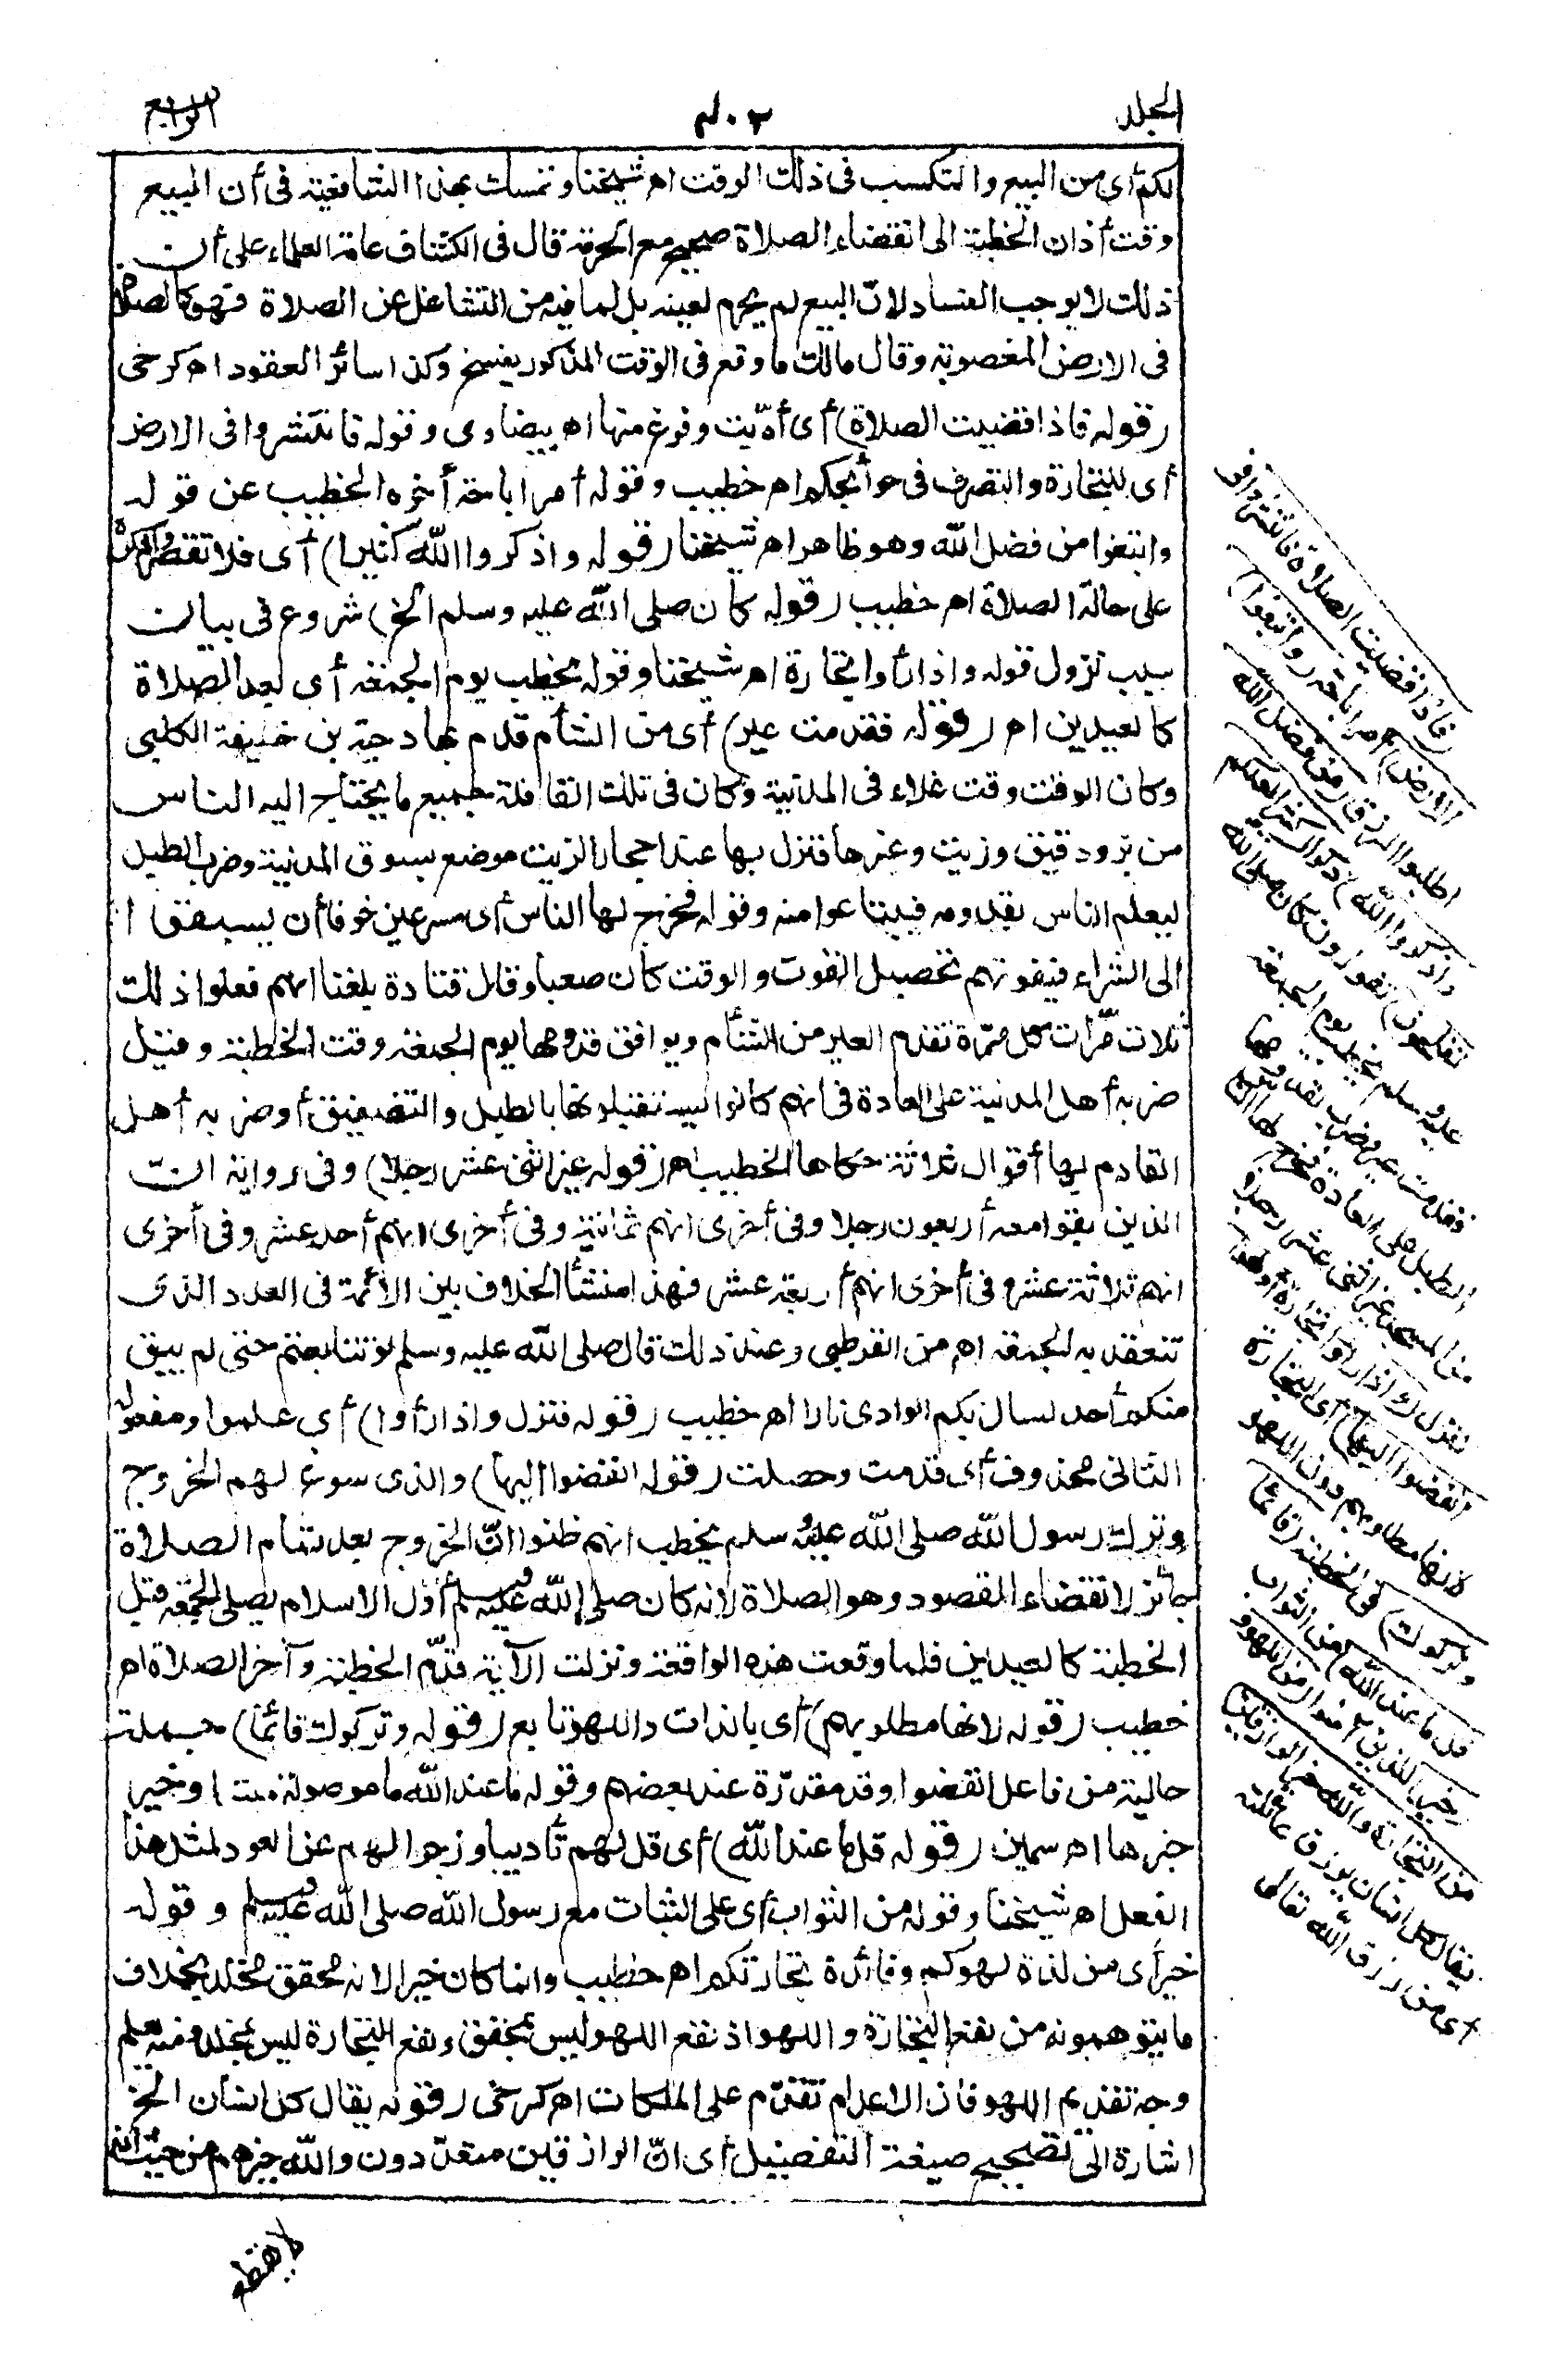 الجلد
٣٠٢
الرابع
لكم أى من البيع والتكسب فى ذلك الوقت اه شيخنا وتمسك بهذا الشافعية فى أن البيع
وقت أذان الخطبة الى انقضاء الصلاة صحيح مع الحرمة قال فى الكشاف عامة العلماء على أن
ذلك لا يوجب الفساد لانّ البيع لم يحرم لعينه بل لما فيه من التشاغل عن الصلاة فهو كالصلاة
فى الارض المغصوبة وقال مالك ما وقع فى الوقت المذكور يفسخ وكذا سائر العقود اه كرخى
(قوله فاذا قضيت الصلاة) أى أدّيت وفرغ منها اه بيضاوى وقوله فانتشروا فى الارض
أى للتجارة والتصرف فى حوائجكم اه خطيب وقوله أمر اباحة أخره الخطيب عن قوله
وابتغوا من فضل الله وهو ظاهر اه شيخنا (قوله واذكروا الله كثيرا) أى فلا تقصروا ذكره
على حالة الصلاة اه خطيب (قوله كان صلى الله عليه وسلم الخ) شروع فى بيان
سبب نزول قوله واذا رأوا تجارة اه شيخنا وقوله يخطب يوم الجمعة أى بعد الصلاة
كالعيدين اه (قوله فقدمت عير) أى من الشأم قدم بها دحية بن خليفة الكلبى
وكان الوقت وقت غلاء فى المدينة وكان فى تلك القافلة جميع ما يحتاج اليه الناس
من برّ ودقيق وزيت وغيرها فنزل بها عند احجار الزيت موضع بسوق المدينة وضرب الطبل
ليعلم الناس بقدومه فيبتاعوا منه وقوله فخرج لها الناس أى مسرعين خوفا أن يسبقوا
الى الشراء فيفوتهم تحصيل القوت والوقت كان صعبا وقال قتادة بلغنا انهم فعلوا ذلك
ثلاث مرّات كل مرّة تقدم العير من الشأم ويوافق قدومها يوم الجمعة وقت الخطبة وقيل
ضربه أهل المدينة على العادة فى انهم كانوا يستقبلونها بالطبل والتصفيق أو ضربه أهل
القادم بها أقوال ثلاثة حكاها الخطيب اه (قوله غير اثنى عشر رجلا) وفى رواية انّ
الذين بقوا معه أربعون رجلا وفى أخرى انهم ثمانية وفى أخرى انهم أحد عشر وفى أخرى
انهم ثلاثة عشر وفى أخرى انهم أربعة عشر فهذا منشأ الخلاف بين الأئمة فى العدد الذى
تنعقد به الجمعة اه من القرطبى وعند ذلك قال صلى الله عليه وسلم لو تتابعتم حتى لم يبق
منكم أحد لسال بكم الوادى نارا اه خطيب (قوله فنزل واذا رأوا) أى علموا ومفعوله
الثانى محذوف أى قدمت وحصلت (قوله انفضوا اليها) والذى سوغ لهم الخروج
وترك رسول الله صلى الله عليه وسلم يخطب انهم ظنوا انّ الخروج بعد تمام الصلاة
جائز لانقضاء المقصود وهو الصلاة لانه كان صلى الله عليه وسلم أوّل الاسلام يصلى الجمعة قبل
الخطبة كالعيدين فلما وقعت هذه الواقعة ونزلت الآية قدّم الخطبة وآخر الصلاة اه
خطيب (قوله لانها مطلوبهم) أى بالذات واللهو تابع (قوله وتركوك قائما) جملة
حالية من فاعل انفضوا وقد مقدّرة عند بعضهم وقوله ما عند الله ما موصولة مبتدا وخير
خبرها اه سمين (قوله قل ما عند الله) أى قل لهم تأديبا وزجرا لهم عن العود لمثل هذا
الفعل اه شيخنا وقوله من الثواب أى على الثبات مع رسول الله صلى الله عليه وسلم وقوله
خير أى من لذة لهوكم وفائدة تجارتكم اه خطيب وانما كان خيرا لانه محقق مخلد بخلاف
ما يتوهمونه من نفع التجارة واللهو اذ نفع اللهو ليس بمحقق ونفع التجارة ليس بمخلد ومنه يعلم
وجه تقديم اللهو فان الاعدام تقدّم على الملكات اه كرخى (قوله يقال كل انسان الخ)
اشارة الى تصحيح صيغة التفضيل أى انّ الرازقين متعدّدون والله خيرهم من حيث انه
(فاذا قضيت الصلاة فانتشروا فى
الارض) أمر اباحة (وابتغوا)
اطلبوا الرزق (من فضل الله
واذكروا الله) ذكرا (كثيرا لعلكم
تفلحون) تفوزون كان صلى الله
عليه وسلم يخطب يوم الجمعة
فقدمت عير وضرب لقدومها
الطبل على العادة فخرج لها الناس
من المسجد غير اثنى عشر رجلا
فنزل (واذا رأوا تجارة أو لهوا
انفضوا اليها) أى التجارة
لانها مطلوبهم دون اللهو
(وتركوك) فى الخطبة (قائما
قل ما عند الله) من الثواب
(خير) للذين آمنوا (من اللهو و
من التجارة والله خير الرازقين)
يقال كل انسان يرزق عائلته
أى من رزق الله تعالى